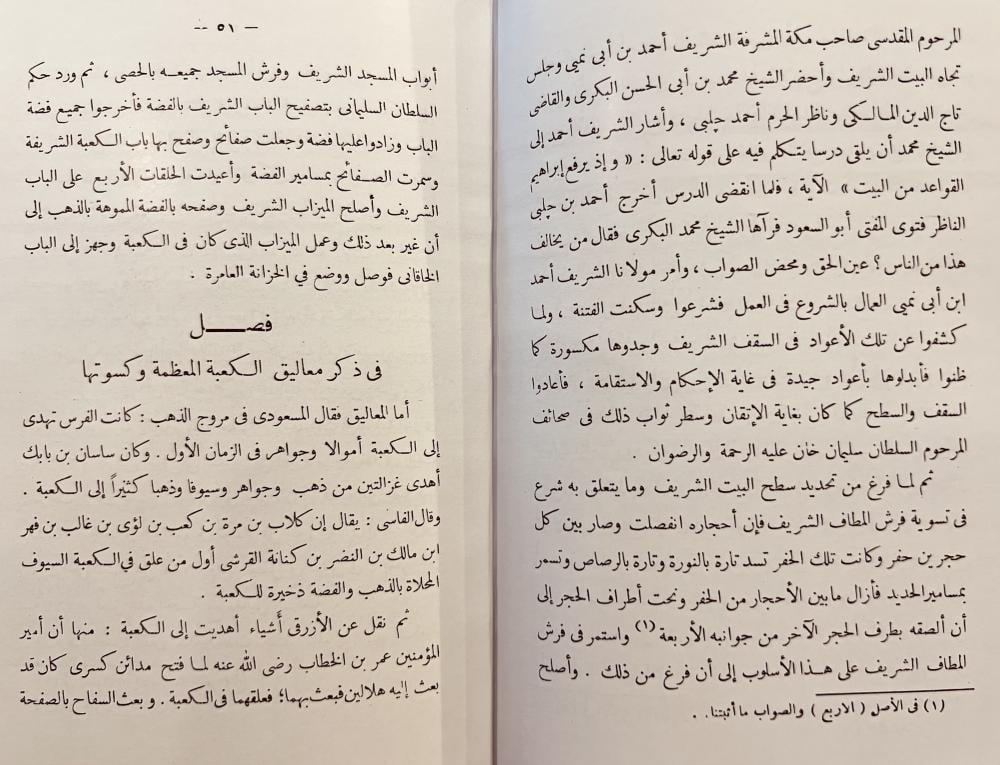 المرحوم المقدسى صاحب مكة المشرفة الشريف أحمد بن أبى نميى وجلس
تجاه البيت الشريف وأحضر الشيخ محمد بن أبى الحسن البكرى والقاضى
تاج الدين المالكى وناظر الحرم أحمد چلبى ، وأشار الشريف أحمد إلى
الشيخ محمد أن يلقى درسا يتكلم فيه على قوله تعالى : « وإذ يرفع إبراهيم
القواعد من البيت » الآية ، فلما انقضى الدرس أخرج أحمد بن چلبى
الناظر فتوى المفتى أبو السعود فرآها الشيخ محمد البكرى فقال من يخالف
هذا من الناس؟ عين الحق ومحض الصواب ، وأمر مولانا الشريف أحمد
ابن أبى نميى العمال بالشروع فى العمل فشرعوا وسكنت الفتنة ، ولما
كشفوا عن تلك الأعواد فى السقف الشريف وجدوها مكسورة كما
ظنوا فأبدلوها بأعواد جيدة فى غاية الإحكام والاستقامة ، فأعادوا
السقف والسطح كما كان بغاية الإتقان وسطر ثواب ذلك فى صحائف
المرحوم السلطان سليمان خان عليه الرحمة والرضوان .
ثم لما فرغ من تحديد سطح البيت الشريف وما يتعلق به شرع
فى تسوية فرش المطاف الشريف فإن أحجاره انفصلت وصار بين كل
حجرين حفر وكانت تلك الحفر تسد تارة بالنورة وتارة بالرصاص وتسمر
بمسامير الحديد فأزال ما بين الأحجار من الحفر ونحت أطراف الحجر إلى
أن ألصقه بطرف الحجر الآخر من جوانبه الأربعة (١) واستمر فى فرش
المطاف الشريف على هذا الأسلوب إلى أن فرغ من ذلك . وأصلح
(١) فى الأصل ( الاربع ) والصواب ما أثبتنا. .
— ٥١ —
أبواب المسجد الشريف وفرش المسجد جميعه بالحصى ، ثم ورد حكم
السلطان السليمانى بتصفيح الباب الشريف بالفضة فأخرجوا جميع فضة
الباب وزادوا عليها فضة وجعلت صفائح وصفح بها باب الكعبة الشريفة
وسمرت الصفائح بمسامير الفضة وأعيدت الحلقات الأربع على الباب
الشريف وأصلح الميزاب الشريف وصفحه بالفضة المموهة بالذهب إلى
أن غير بعد ذلك وعمل الميزاب الذى كان فى الكعبة وجهز إلى الباب
الخاقانى فوصل ووضع في الخزانة العامرة .
فصل
فى ذكر معاليق الكعبة المعظمة وكسوتها
أما المعاليق فقال المسعودى فى مروج الذهب : كانت الفرس تهدى
إلى الكعبة أموالا وجواهر فى الزمان الأول . وكان ساسان بن بابك
أهدى غزالتين من ذهب وجواهر وسيوفا وذهبا كثيراً إلى الكعبة .
وقال الفاسى : يقال إن كلاب بن مرة بن كعب بن لؤى بن غالب بن فهر
ابن مالك بن النضر بن كنانة القرشى أول من علق في الكعبة السيوف
المحلاة بالذهب والفضة ذخيرة للكعبة .
ثم نقل عن الأزرقى أشياء أهديت إلى الكعبة : منها أن أمير
المؤمنين عمر بن الخطاب رضى الله عنه لما فتح مدائن كسرى كان قد
بعث إليه هلالين فبعث بهما؛ فعلقهما فى الكعبة . و بعث السفاح بالصفحة